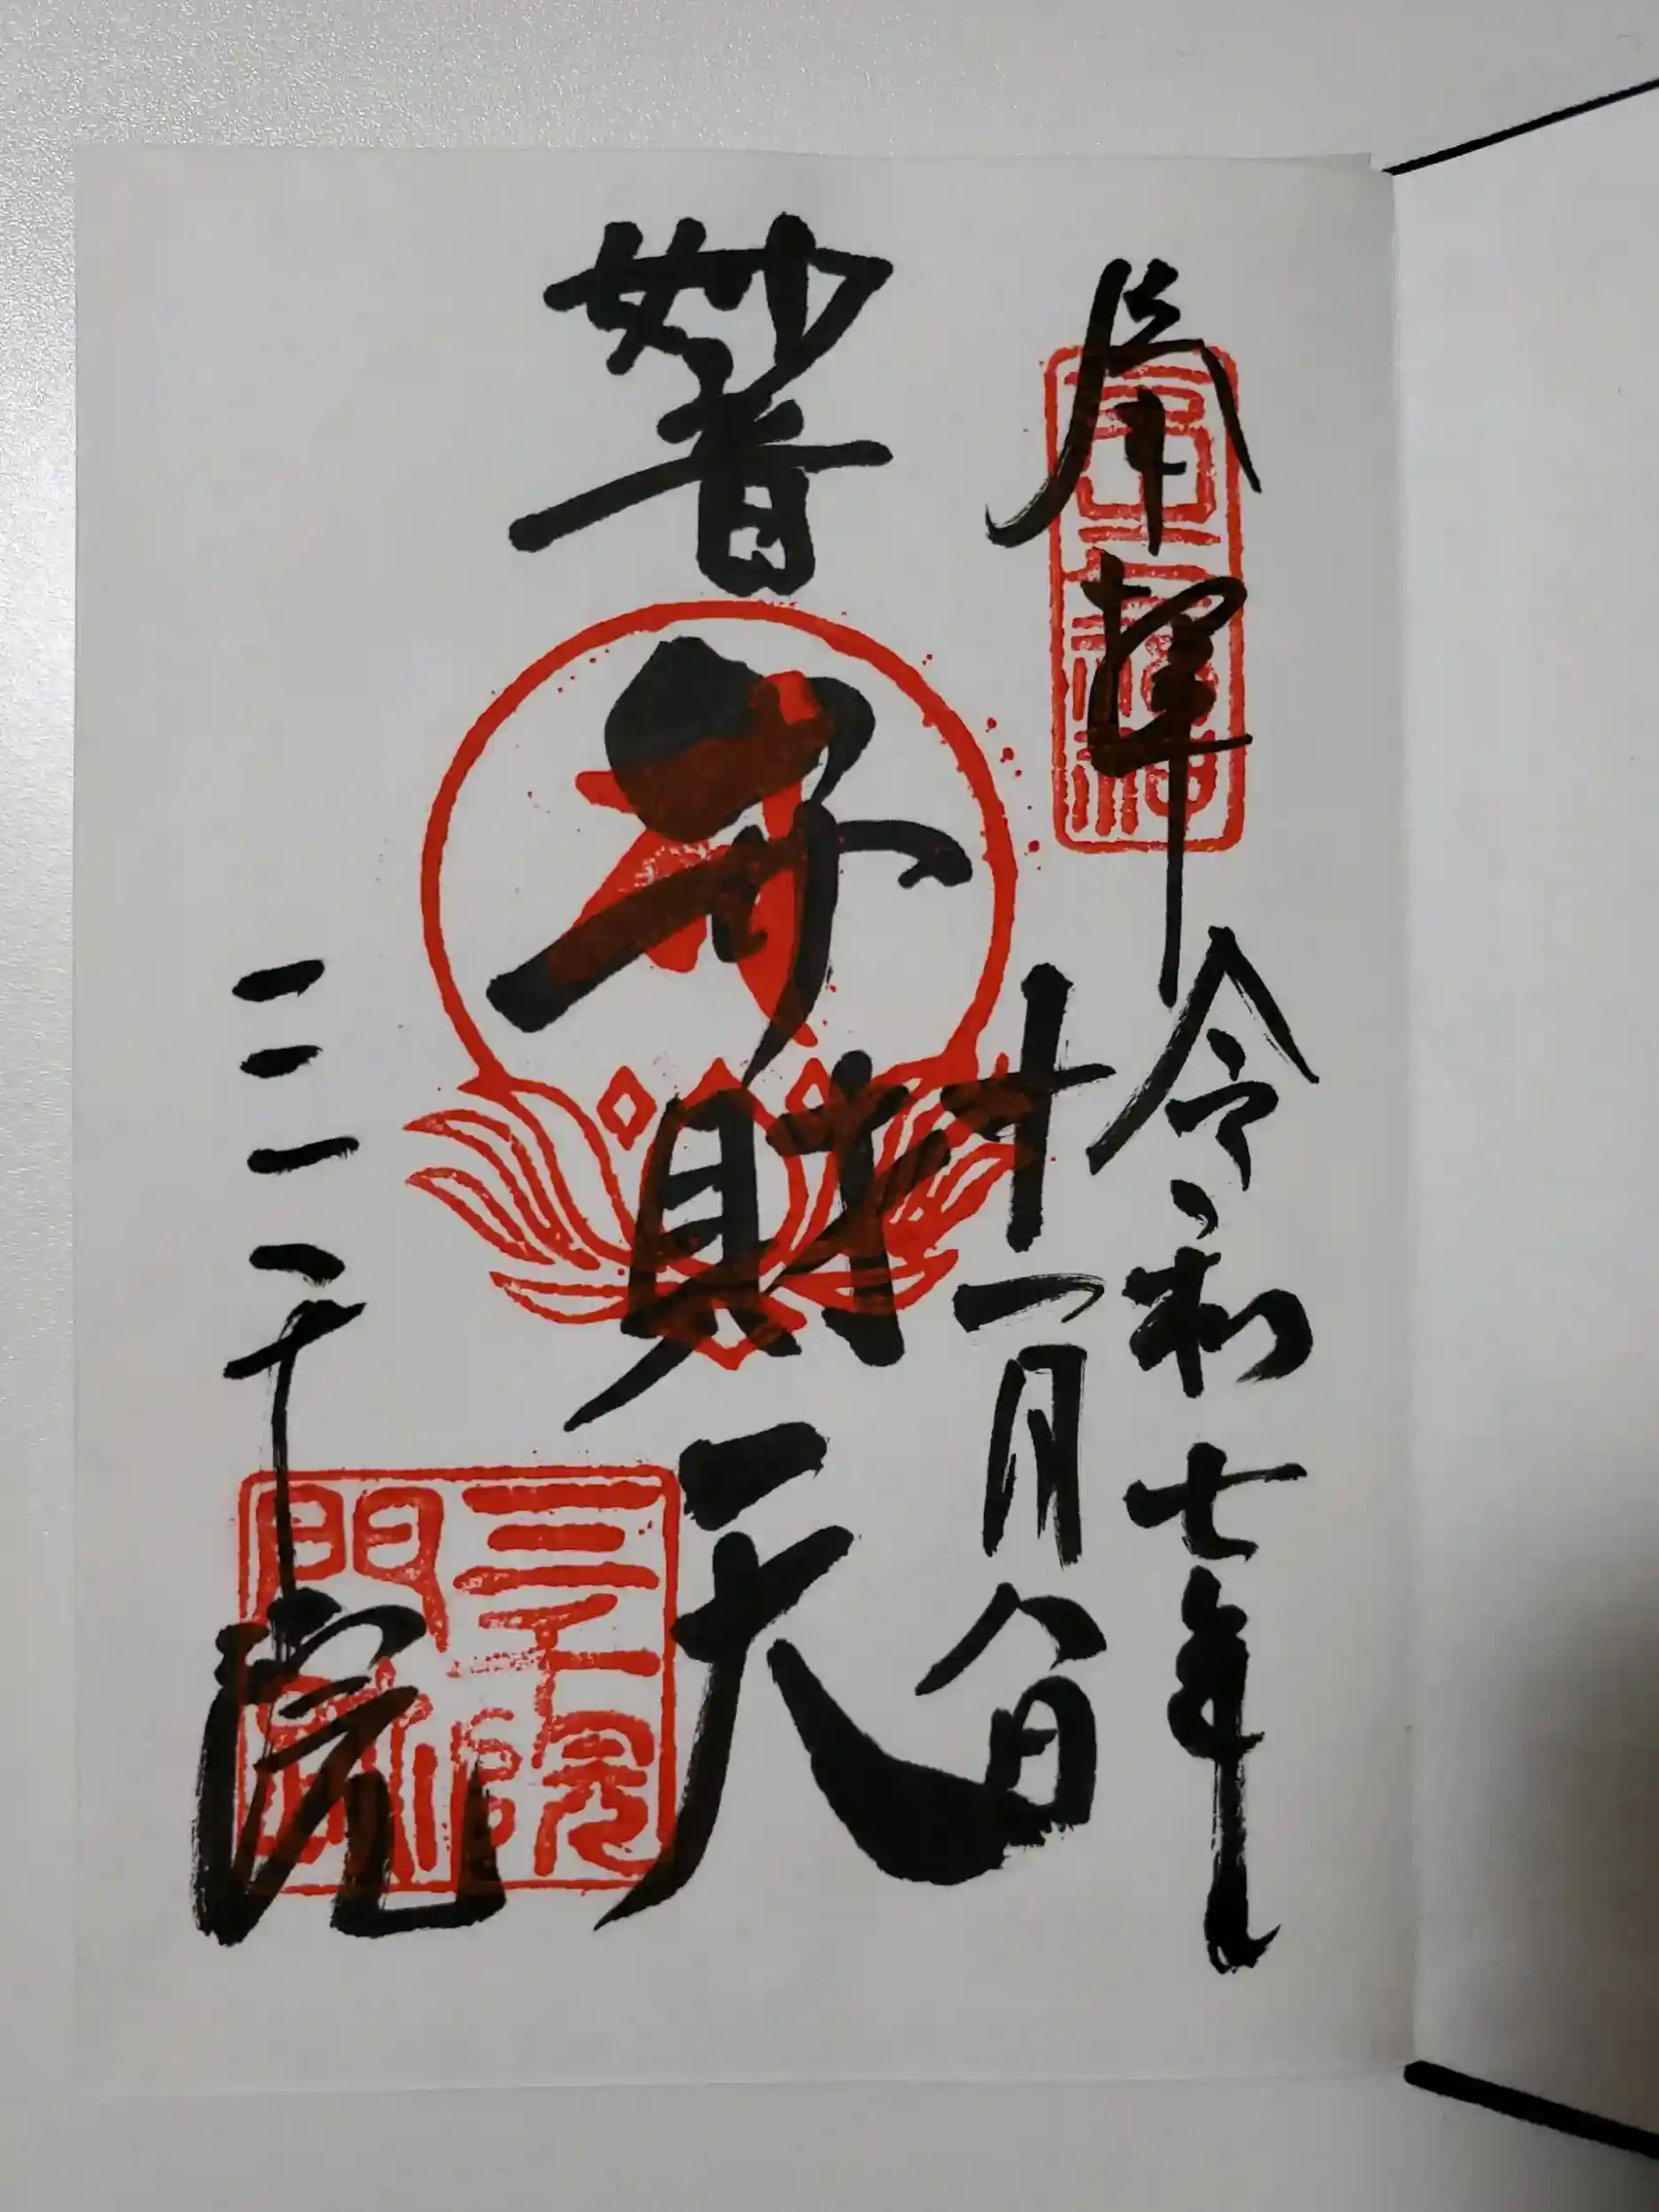 奉拝
令和七年
十一月八日
妙音弁財天
三千院
三千院門跡